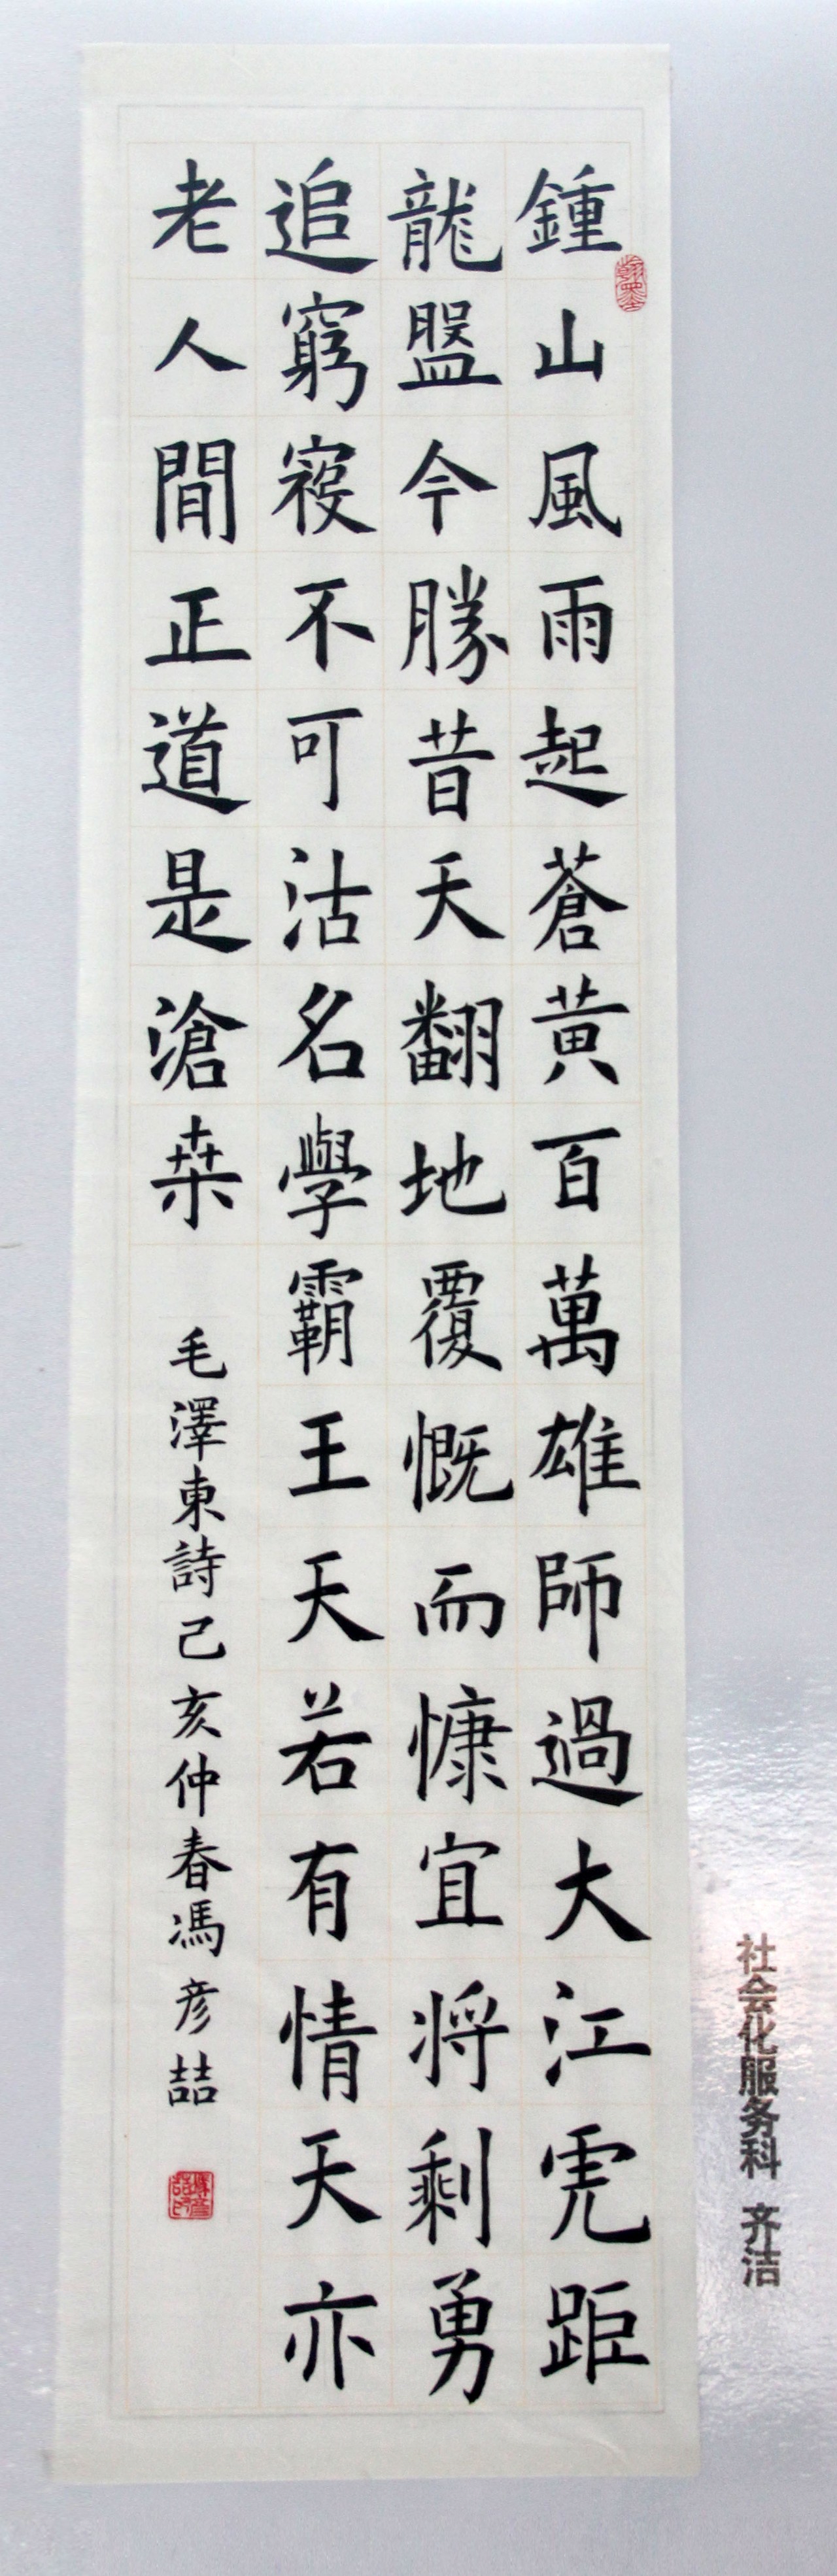 鍾山風雨起蒼黃百萬雄師過大江虎距
龍盤今勝昔天翻地覆慨而慷宜將剩勇
追窮寇不可沽名學霸王天若有情天亦
老人間正道是滄桑
毛澤東詩己亥仲春馮彦喆
翰墨
社会化服务科 齐洁